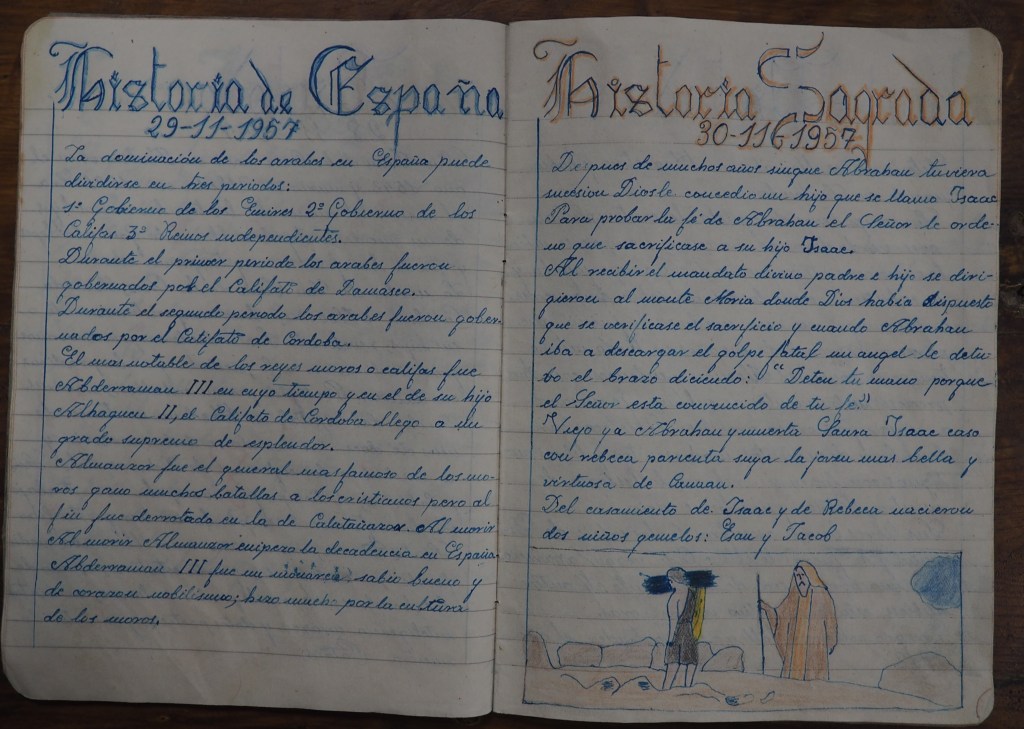 Historia de España
29-11-1957
La dominación de los arabes en España puede
dividirse en tres periodos:
1º Gobierno de los Emires 2º Gobierno de los
Califas 3º Reinos independientes.
Durante el primer periodo los arabes fueron
gobernados por el Califato de Damasco.
Durante el segundo periodo los arabes fueron gober-
nados por el Califato de Cordoba.
El mas notable de los reyes moros o califas fue
Abderraman III en cuyo tiempo y en el de su hijo
Alhaquen II, el Califato de Cordoba llego a su
grado supremo de esplendor.
Almanzor fue el general mas famoso de los mo-
ros gano muchas batallas a los cristianos pero al
fin fue derrotado en la de Calatañazor. Al morir
Al morir Almanzor empezo la decadencia en España.
Abderraman III fue un monarca sabio bueno y
de corazon nobilisimo; hizo mucho por la cultura
de los moros.
Historia Sagrada
30-11-1957
Depues de muchos años sinque Abrahan tuviera
sucesion Diosle concedio un hijo que se llamo Isaac
Para probar la fé de Abrahan el Señor le orde-
no que sacrificase a su hijo Isaac.
Al recibir el mandato divino padre e hijo se diri-
gieron al monte Moria donde Dios habia dispuesto
que se verificase el sacrificio y cuando Abrahan
iba a descargar el golpe fatal un angel le detu-
bo el brazo diciendo: "Deten tu mano porque
el Señor esta convencido de tu fe."
Viejo ya Abrahan y muerta Saura Isaac caso
con rebeca parienta suya la joven mas bella y
virtuosa de Canaan.
Del casamiento de Isaac y de Rebeca nacieron
dos niños gemelos: Esau y Jacob